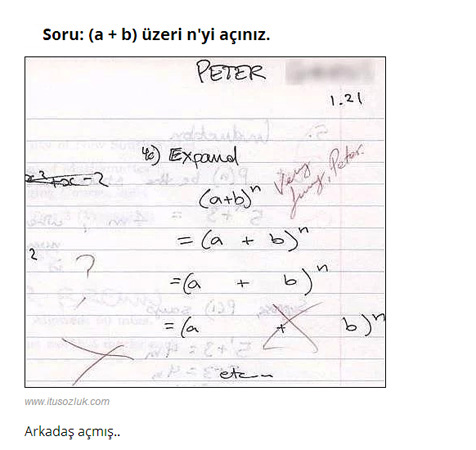 Soru: (a + b) üzeri n'yi açınız.
PETER
1.21
4c) Expand
x² + x - 2
(a+b)ⁿ
Very funny, Peter.
= (a + b)ⁿ
2
?
= (a + b)ⁿ
= (a + b)ⁿ
etc...
www.itusozluk.com
Arkadaş açmış..